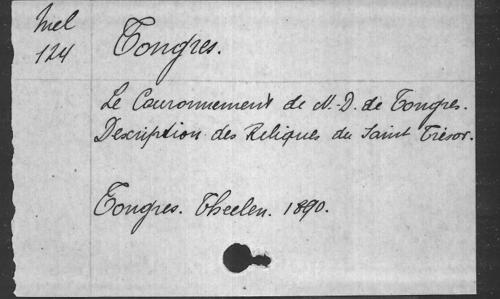 Mel
124
Tongres.
Le Couronnement de N.-D. de Tongres.
Description des Reliques du Saint Trésor.
Tongres. Theelen. 1890.